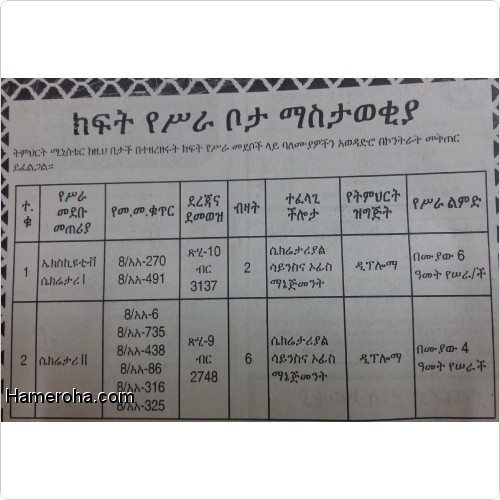 ክፍት የሥራ ቦታ ማስታወቂያ
ትምህርት ሚኒስቴር ከዚህ በታች በተዘረዘሩት ክፍት የሥራ መደቦች ላይ ባለሙያዎችን አወዳድሮ በኮንትራት መቅጠር
ይፈልጋል።
ተ.ቁ
የሥራ መደቡ መጠሪያ
የመ.መ.ቁጥር
ደረጃና ደመወዝ
ብዛት
ተፈላጊ ችሎታ
የትምህርት ዝግጅት
የሥራ ልምድ
1
ኤክስኪዩቲቭ
ሴክሬታሪ I
8/አአ-270
8/አአ-491
ጽሂ-10
ብር
3137
2
ሴክሬታሪያል
ሳይንስና ኦፊስ
ማኔጅመንት
ዲፕሎማ
በሙያው 6
ዓመት የሠራ/ች
2
ሴክሬታሪ II
8/አአ-6
8/አአ-735
8/አአ-438
8/አአ-86
8/አአ-316
8/አአ-325
ጽሂ-9
ብር
2748
6
ሴክሬታሪያል
ሳይንስና ኦፊስ
ማኔጅመንት
ዲፕሎማ
በሙያው 4
ዓመት የሠራች
Hameroha.com